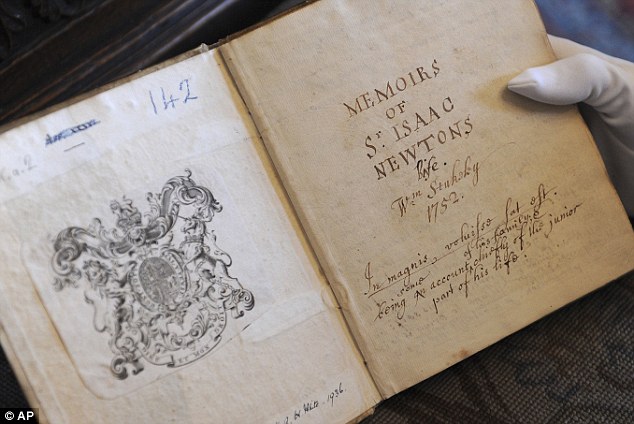 142
MEMOIRS
OF
Sr. ISAAC
NEWTONS
life.
Wm Stukely
1752.
In magnis, voluisse sat est.
being some account of his family
chiefly of the junior
part of his life.
1936.
© AP